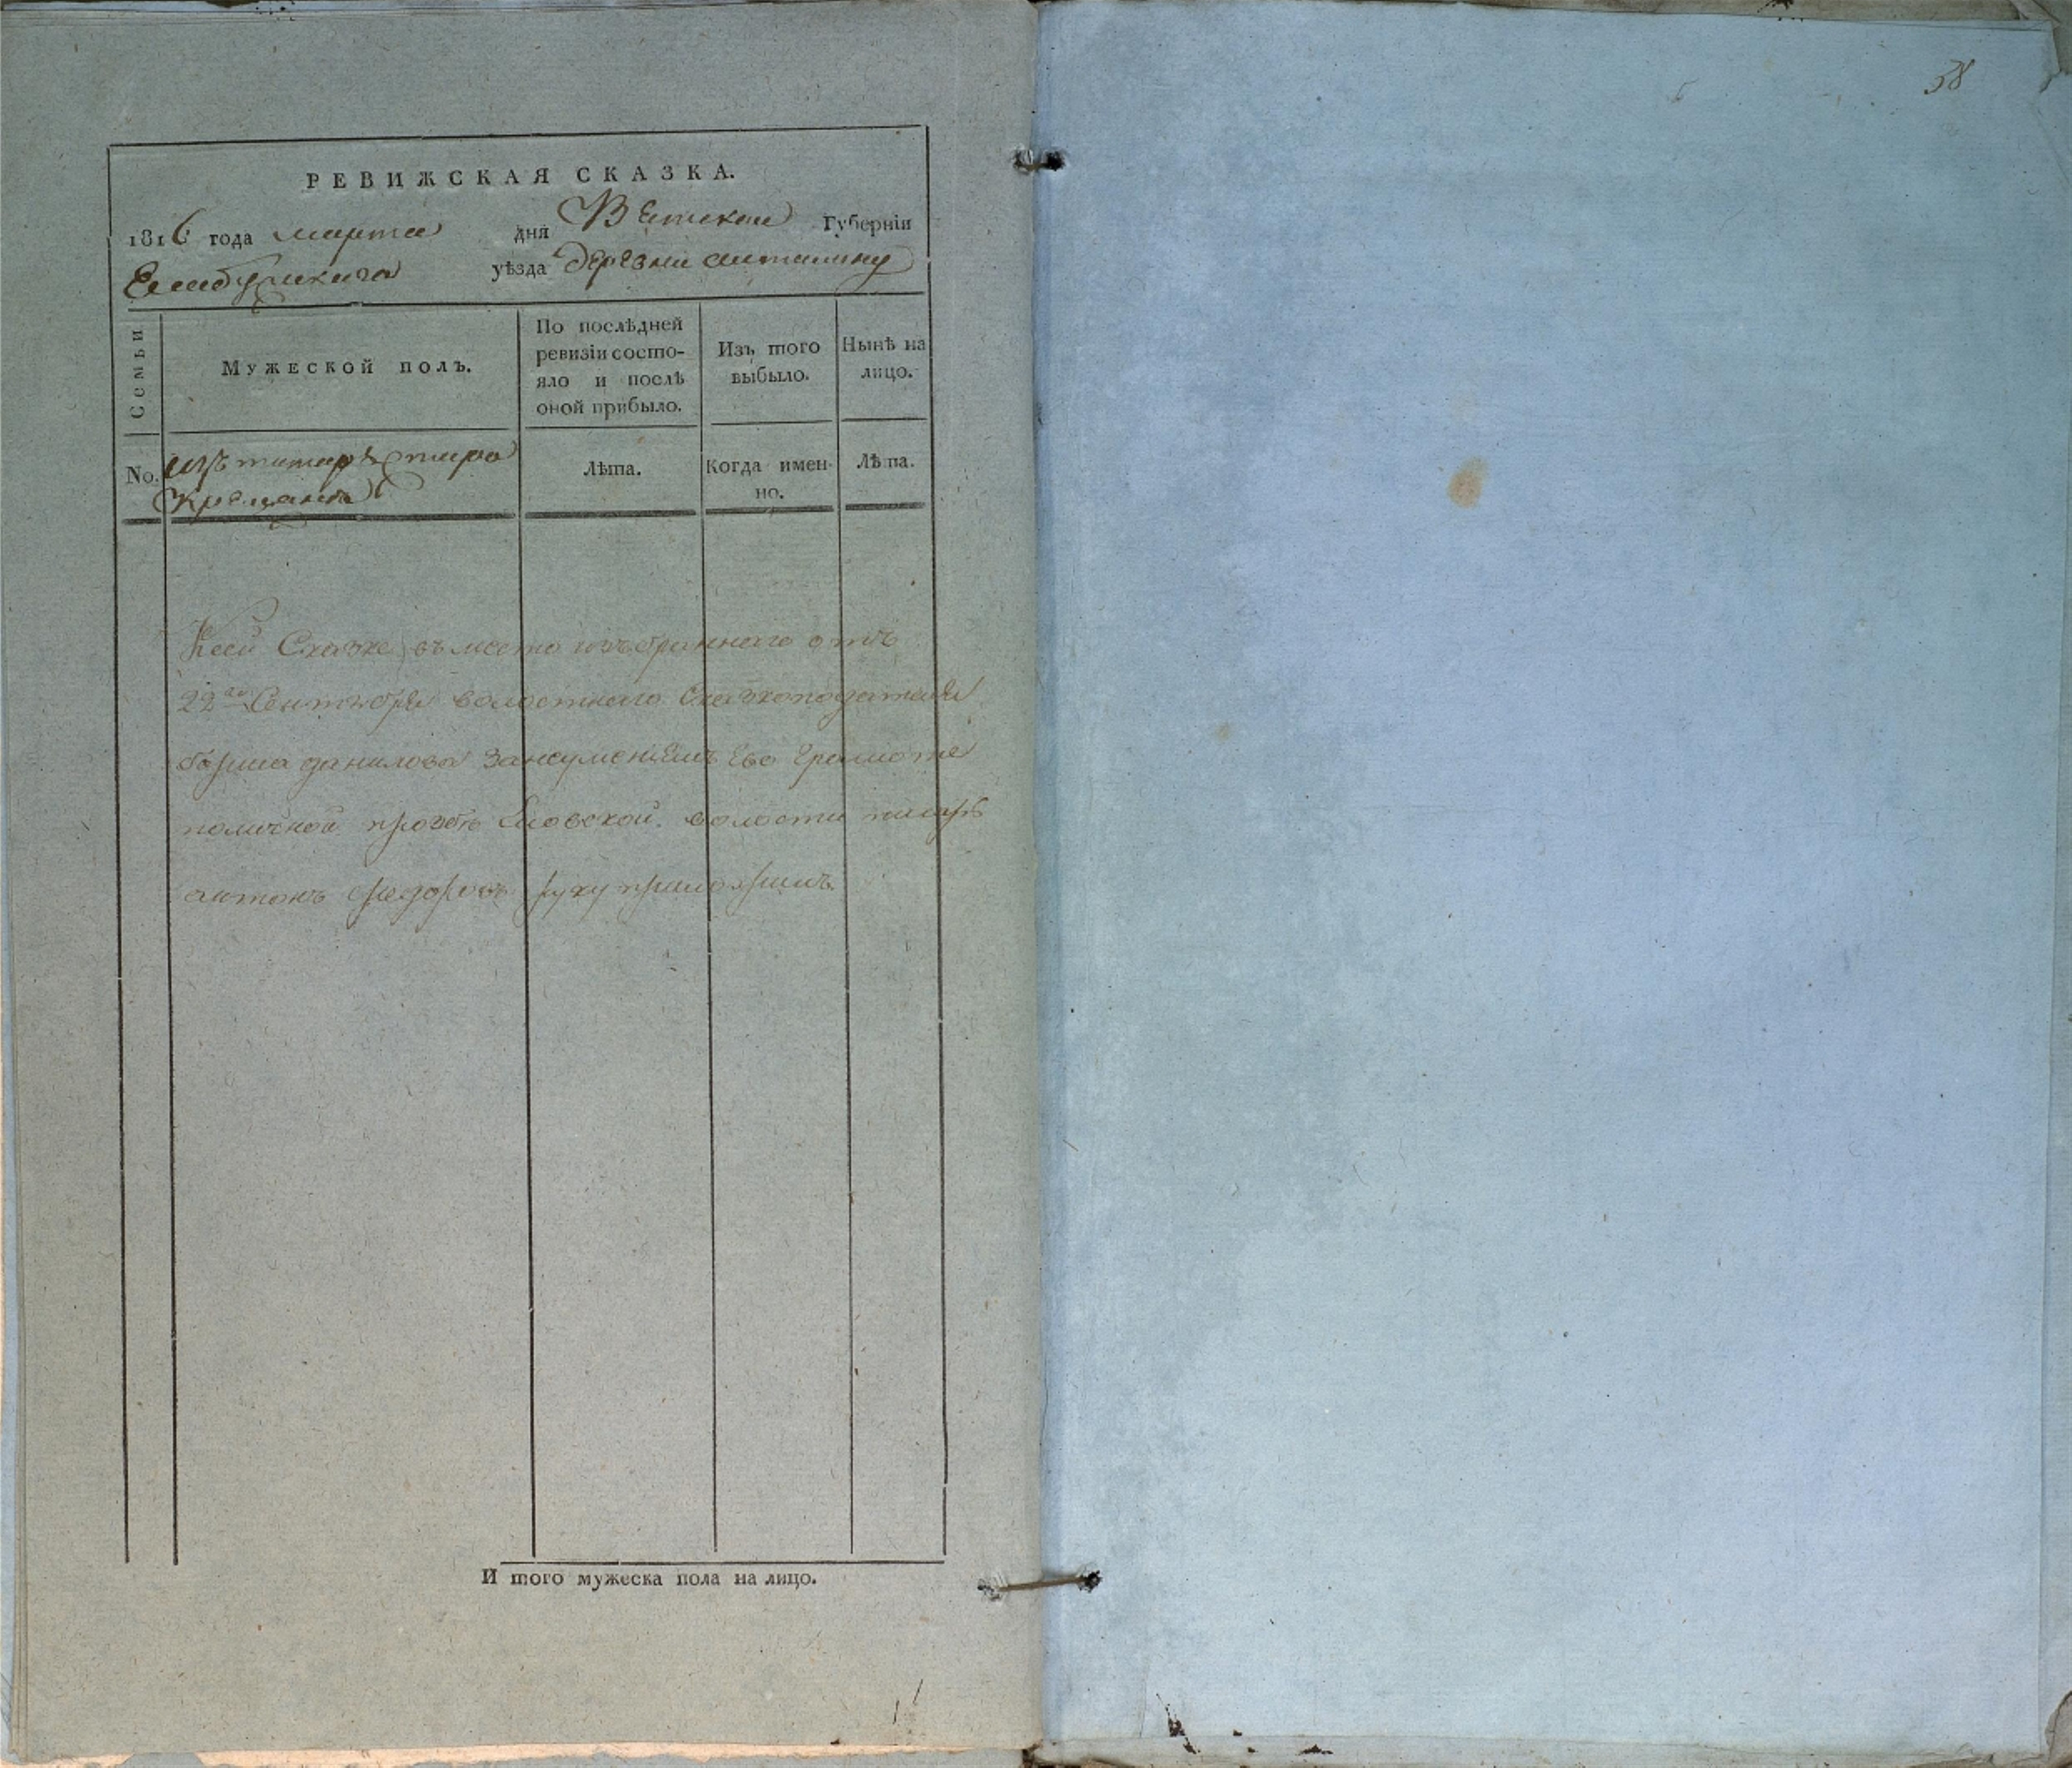 58
РЕВИЖСКАЯ СКАЗКА.
1816 года марта дня Вятской Губерніи
Елабужскаго уѣзда деревни
Семьи
Мужеской полъ.
По послѣдней ревизіи состо-
яло и послѣ
оной прибыло.
Изъ того
выбыло.
Нынѣ на
лицо.
No. изъ татаръ старо
крещеныхъ
Лѣта.
Когда имен-
но.
Лѣта.
Ксей Сказке въместо избраннаго отъ
22го Сентября волостнаго Сказкоподателя
данилова занеумениемъ Ево Грамоте
поличной прозбѣ волости писарь
антонъ федоровъ руку приложилъ.
И того мужеска пола на лицо.